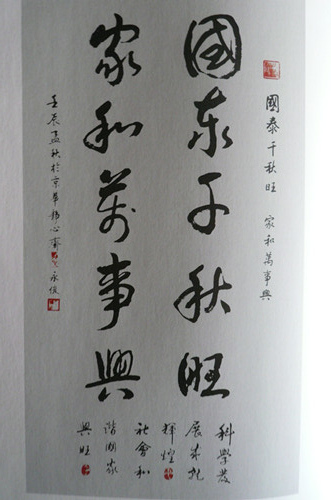 國泰千秋旺 家和萬事興
國泰千秋旺
家和萬事興
壬辰孟秋於京華靜心齋 永俊
科學發
展
輝煌
社會和
諧家
興旺